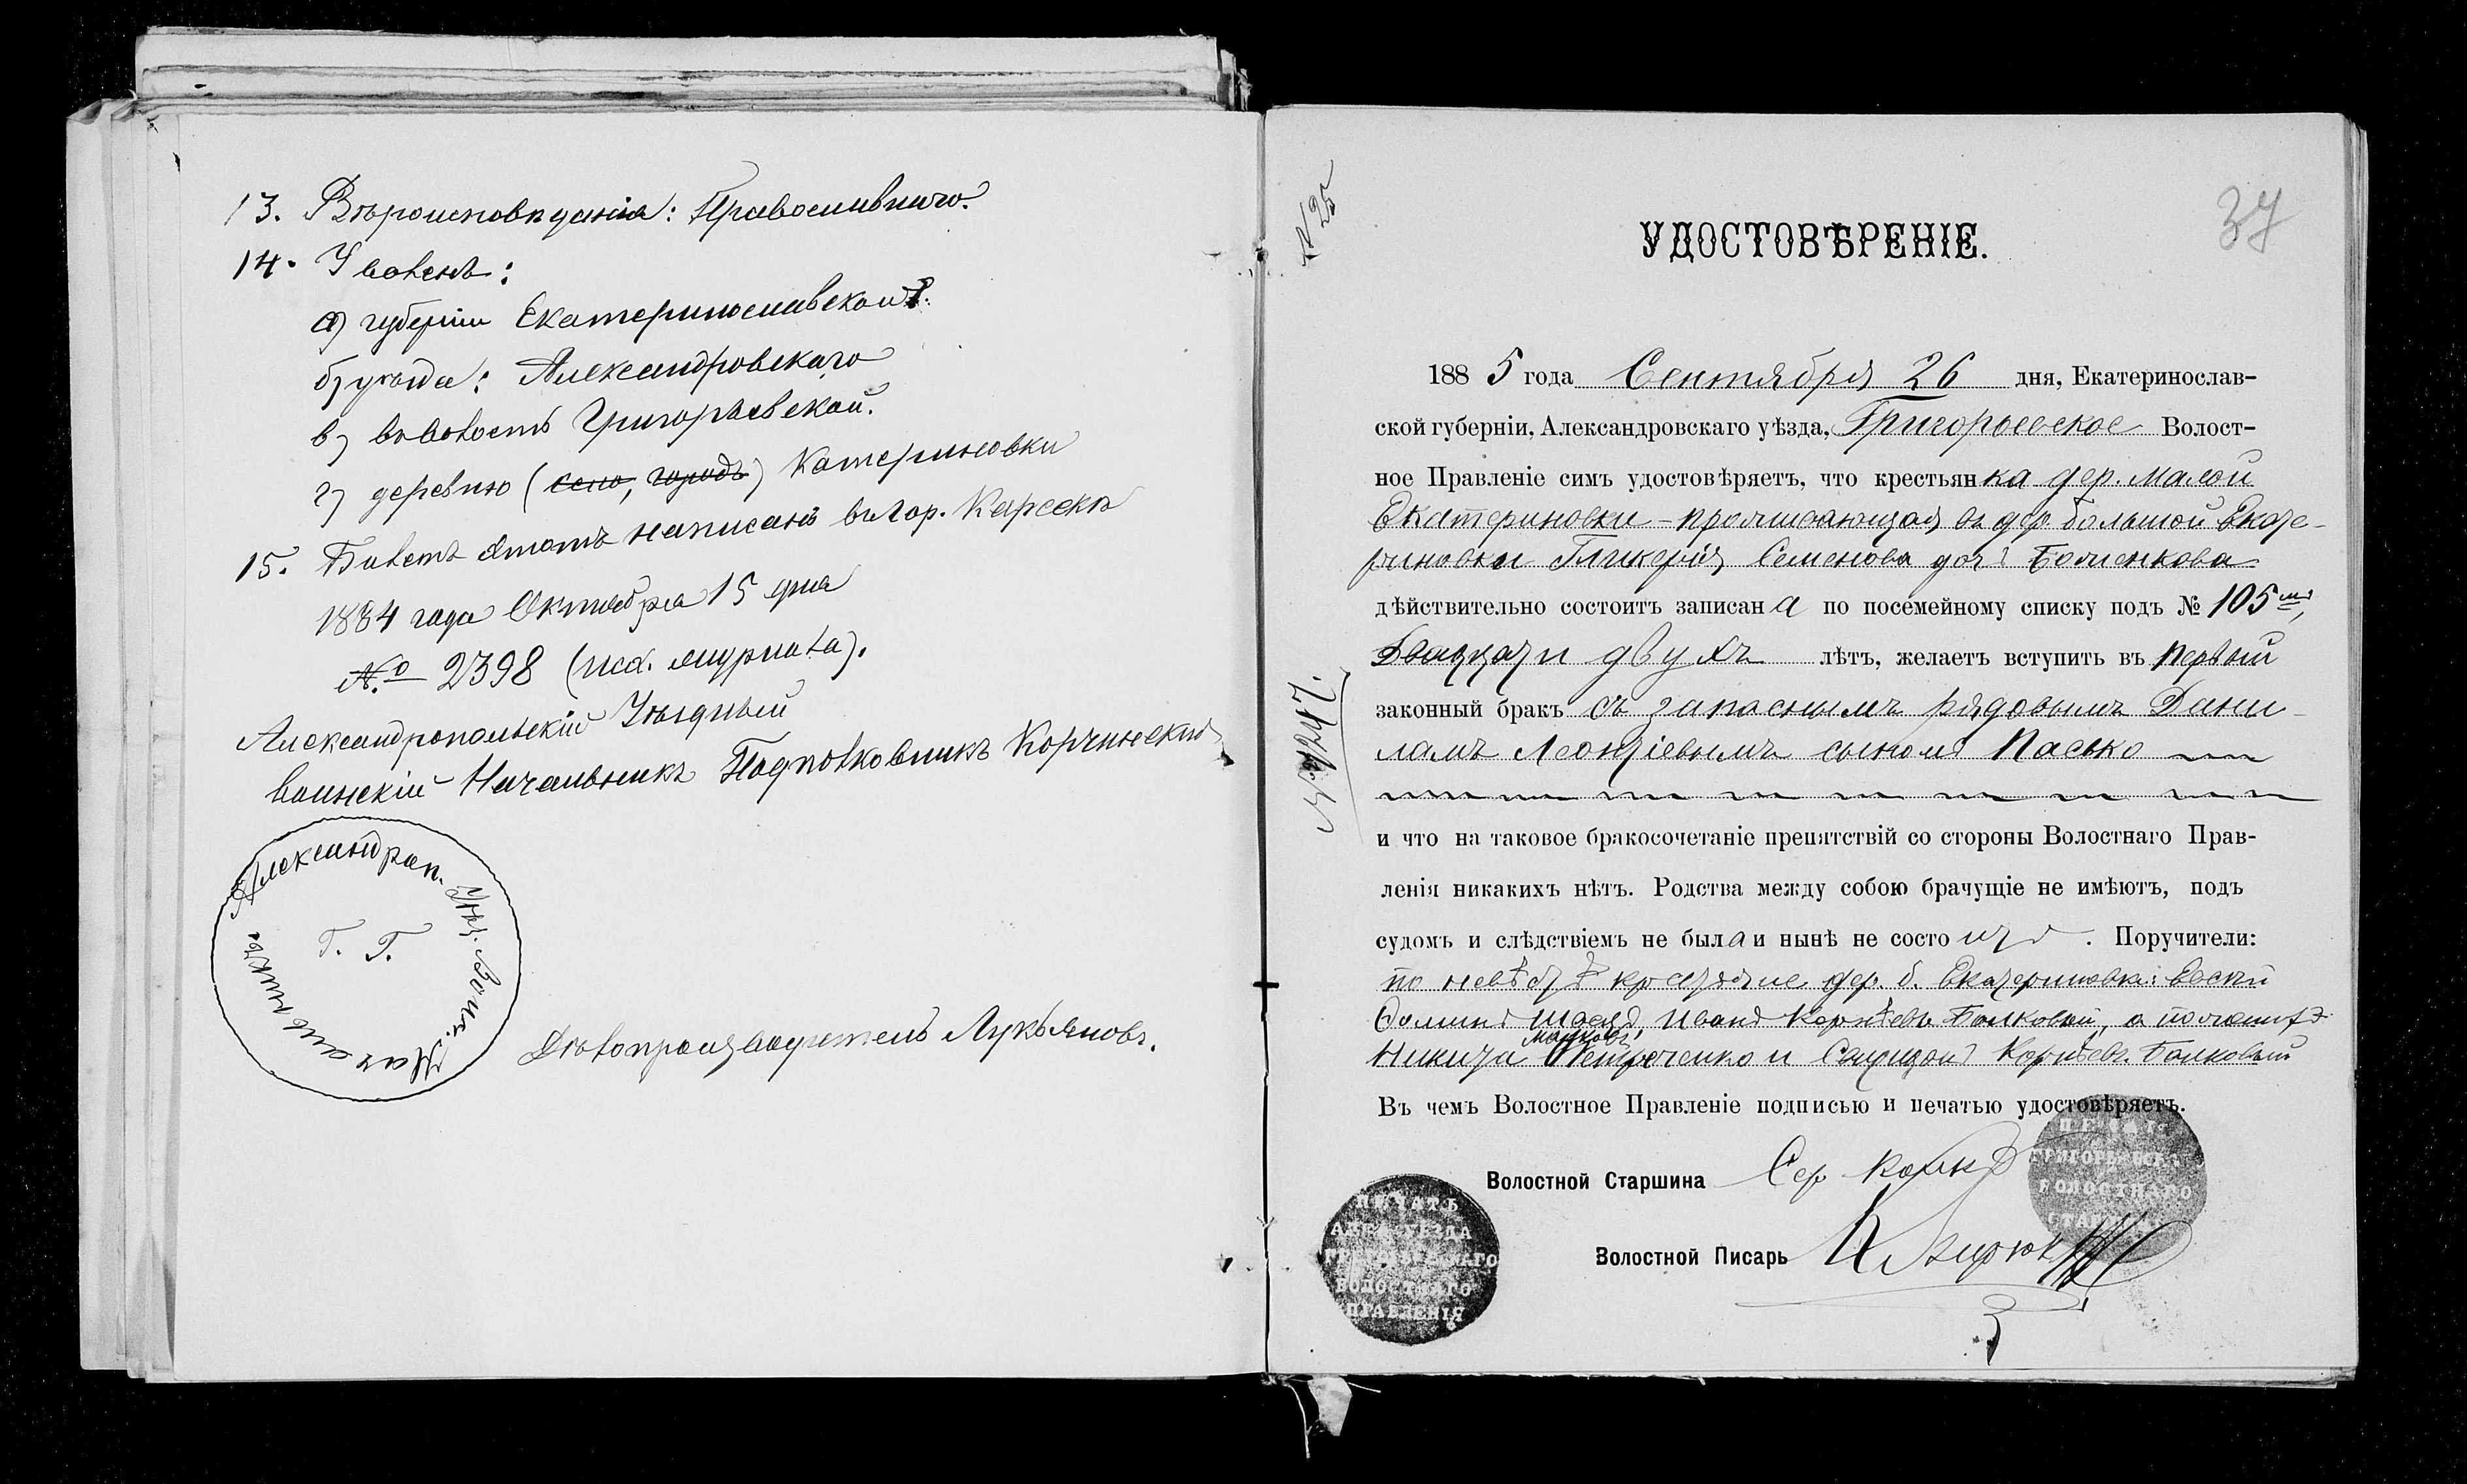 13. Вѣроисповѣданія: Православнаго.
14. Уволенъ:
а) губерніи Екатеринославской
б) уѣзда: Александровскаго
в) въ волость Григорьевской.
г) деревню (село, городъ) Катериновки
15. Билетъ этотъ написанъ въ гор. Карсѣ
1884 года Октября 15 дня
№ 2398 (исх. журнала).
Александропольскій Уѣздный
воинскій Начальникъ Подполковникъ Корчинскій
Александроп. Уѣз. Воин. Начальникъ.
Г. Г.
Дѣлопроизводитель Лукьяновъ.
№ 25
37
УДОСТОВѢРЕНІЕ.
1885 года Сентября 26 дня, Екатеринослав-
ской губерніи, Александровскаго уѣзда, Григорьевское Волост-
ное Правленіе симъ удостовѣряетъ, что крестьянка дер. Малой
Екатериновки - проживающая въ дер. большой Екате-
риновки Гликерія Семенова дочь Боженкова
дѣйствительно состоитъ записана по посемейному списку подъ № 105мъ,
двадцати двухъ лѣтъ, желаетъ вступить въ первый
законный бракъ съ запаснымъ рядовымъ Дани-
ламъ Леонтіевымъ сыномъ Пасько
и что на таковое бракосочетаніе препятствій со стороны Волостнаго Прав-
ленія никакихъ нѣтъ. Родства между собою брачущіе не имѣютъ, подъ
судомъ и слѣдствіемъ не была и нынѣ не состоитъ. Поручители:
по невѣстѣ крестьяне дер. б. Екатериновки:
Иванъ Корнѣевъ Балковой, а по женихѣ
Никита Марковъ Петреченко и Спиридонъ Корнѣевъ Балковый
Въ чемъ Волостное Правленіе подписью и печатью удостовѣряетъ.
Волостной Старшина
Волостной Писарь
ПЕЧАТЬ
АЛЕК. УѢЗДА
ГРИГОРЬЕВСКАГО
ВОЛОСТНАГО
ПРАВЛЕНІЯ
ГРИГОРЬЕВСК
ВОЛОСТНАГО